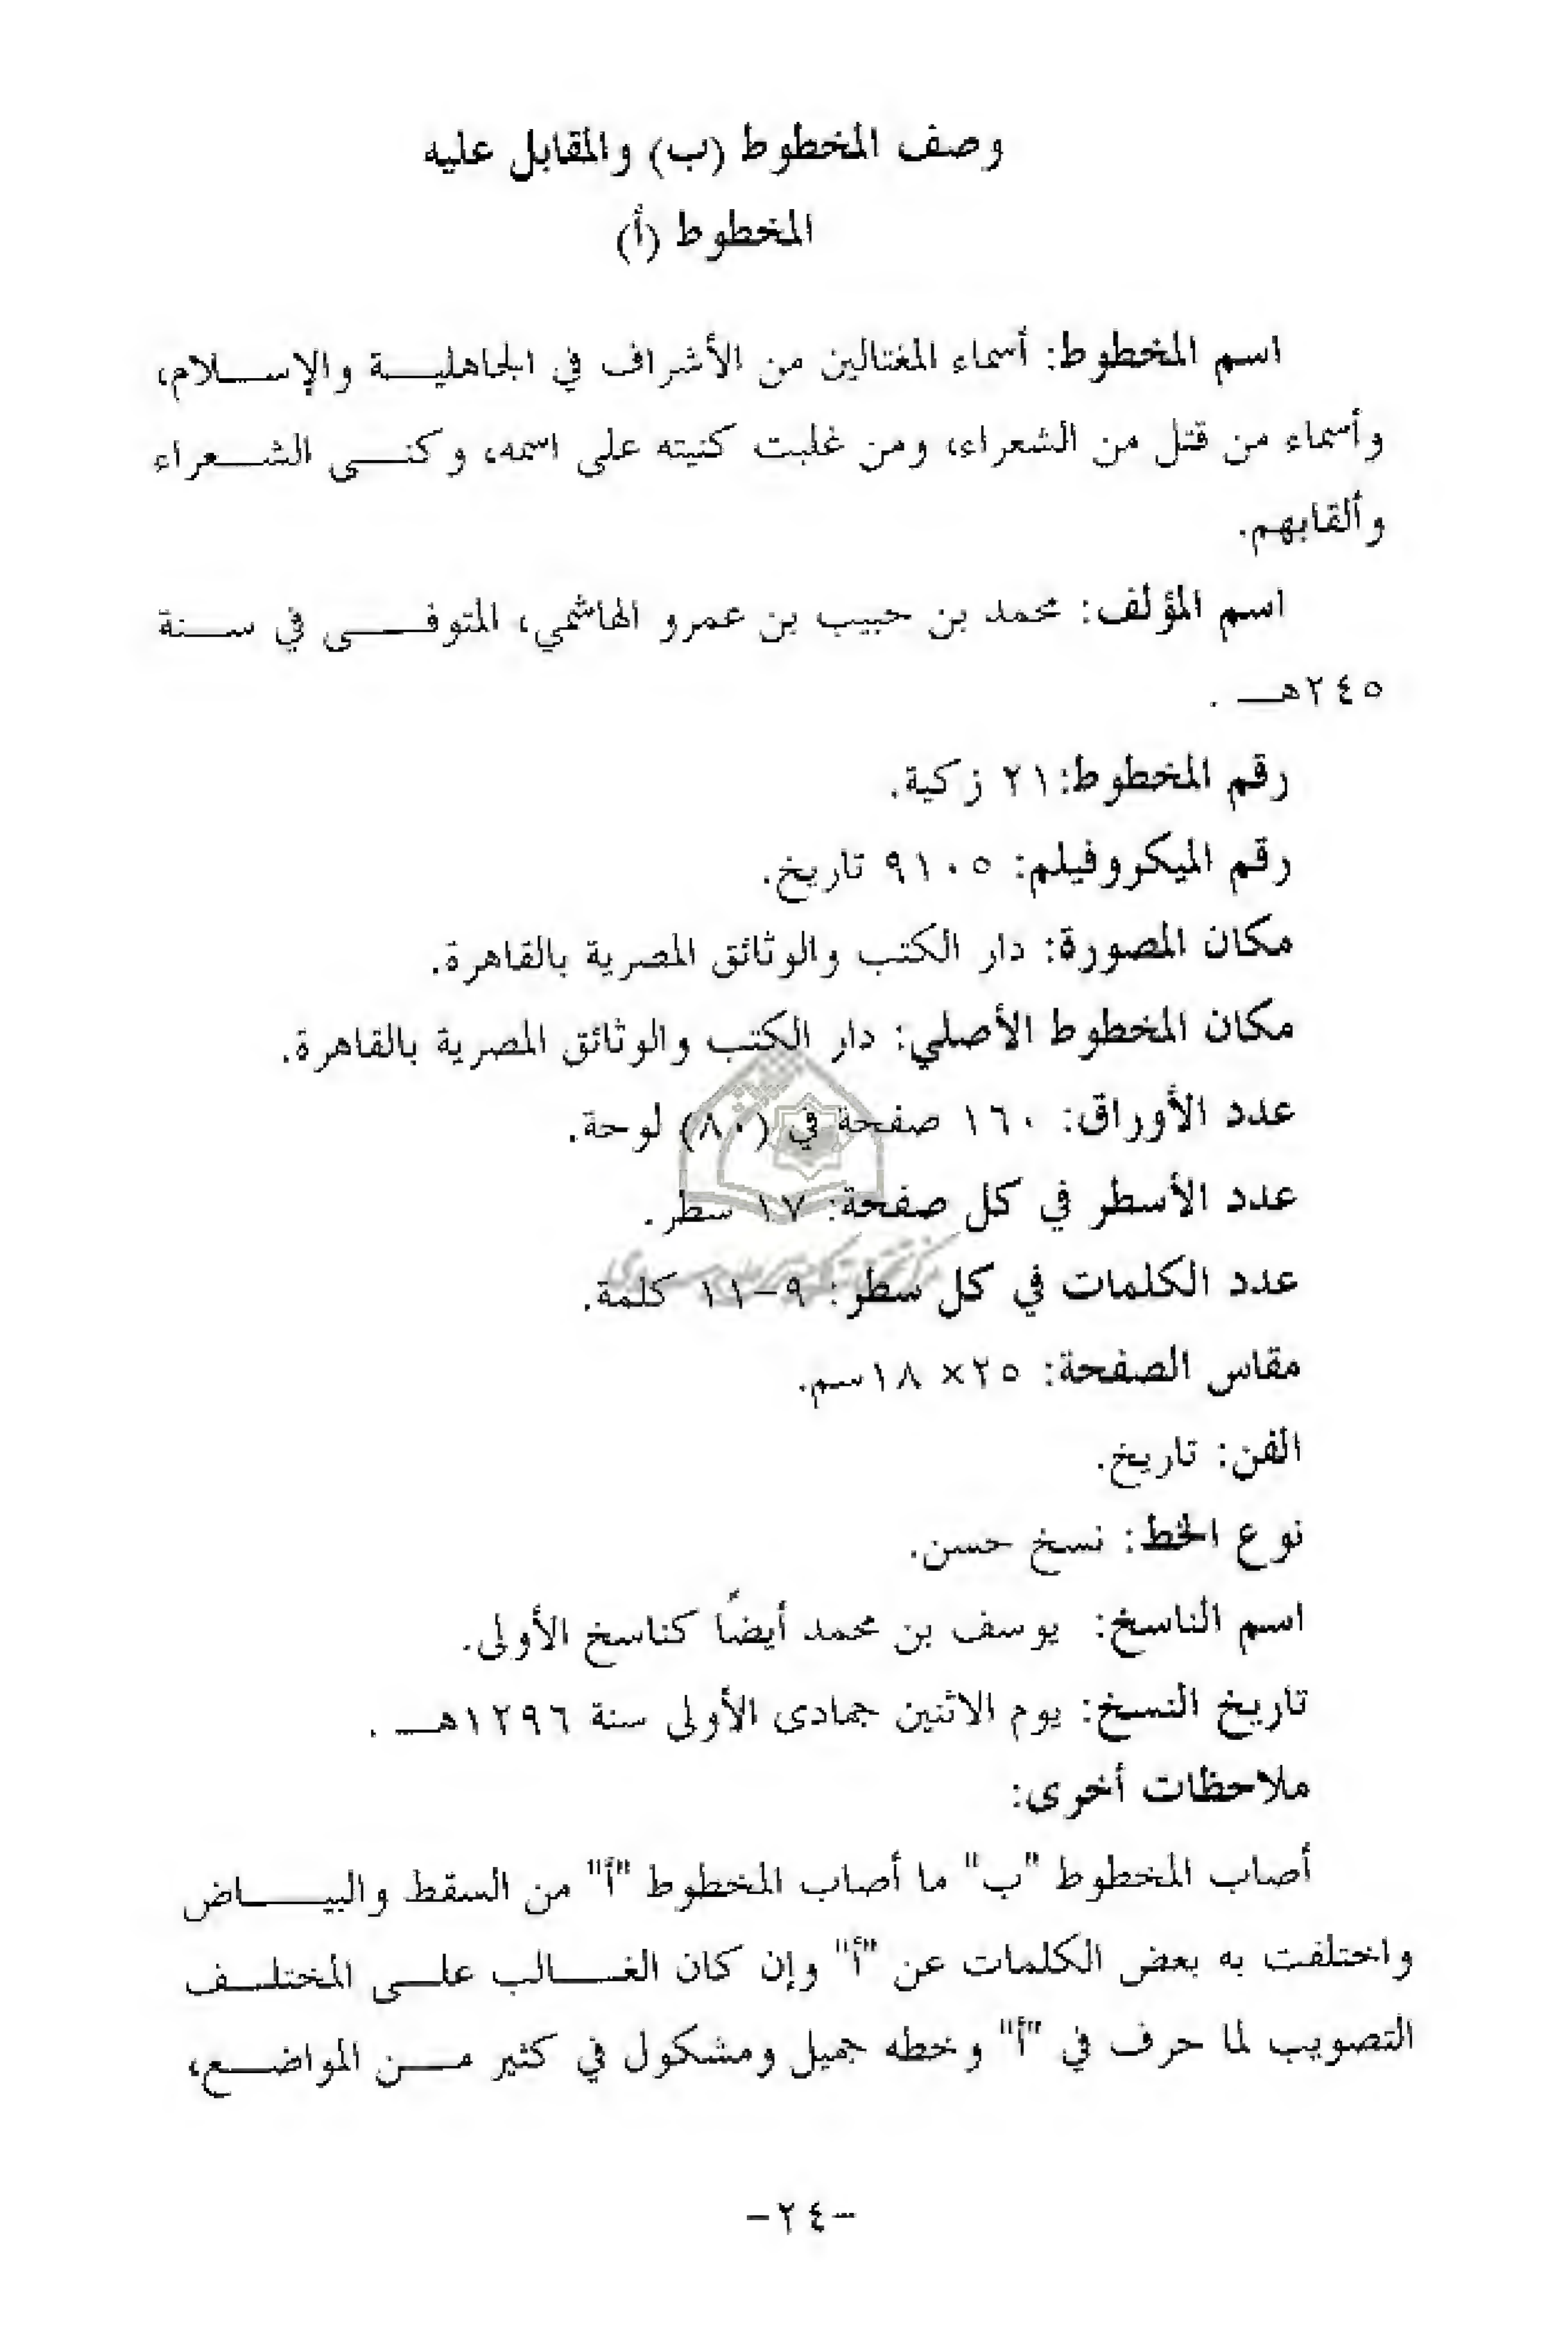 وصف المخطوط (ب) والمقابل عليه
المخطوط (أ)
اسم المخطوط: أسماء المغتالين من الأشراف في الجاهلية والإسلام،
وأسماء من قتل من الشعراء، ومن غلبت كنيته على اسمه، وكنى الشعراء
وألقابهم.
اسم المؤلف: محمد بن حبيب بن عمرو الهاشمي، المتوفى في سنة
٢٤٥هـ .
رقم المخطوط: ٢١ زكية.
رقم الميكروفيلم: ٩١٠٥ تاريخ.
مكان المصورة: دار الكتب والوثائق المصرية بالقاهرة.
مكان المخطوط الأصلي: دار الكتب والوثائق المصرية بالقاهرة.
عدد الأوراق: ١٦٠ صفحة في (٨٠) لوحة.
عدد الأسطر في كل صفحة: ١٧ سطر.
عدد الكلمات في كل سطر: ٩-١١ كلمة.
مقاس الصفحة: ٢٥× ١٨سم.
الفن: تاريخ.
نوع الخط: نسخ حسن.
اسم الناسخ: يوسف بن محمد أيضًا كناسخ الأولى.
تاريخ النسخ: يوم الاثنين جمادى الأولى سنة ١٢٩٦هـ .
ملاحظات أخرى:
أصاب المخطوط "ب" ما أصاب المخطوط "أ" من السقط والبياض
واختلفت به بعض الكلمات عن "أ" وإن كان الغالب على المختلف
التصويب لما حرف في "أ" وخطه جميل ومشكول في كثير من المواضع،
-٢٤-